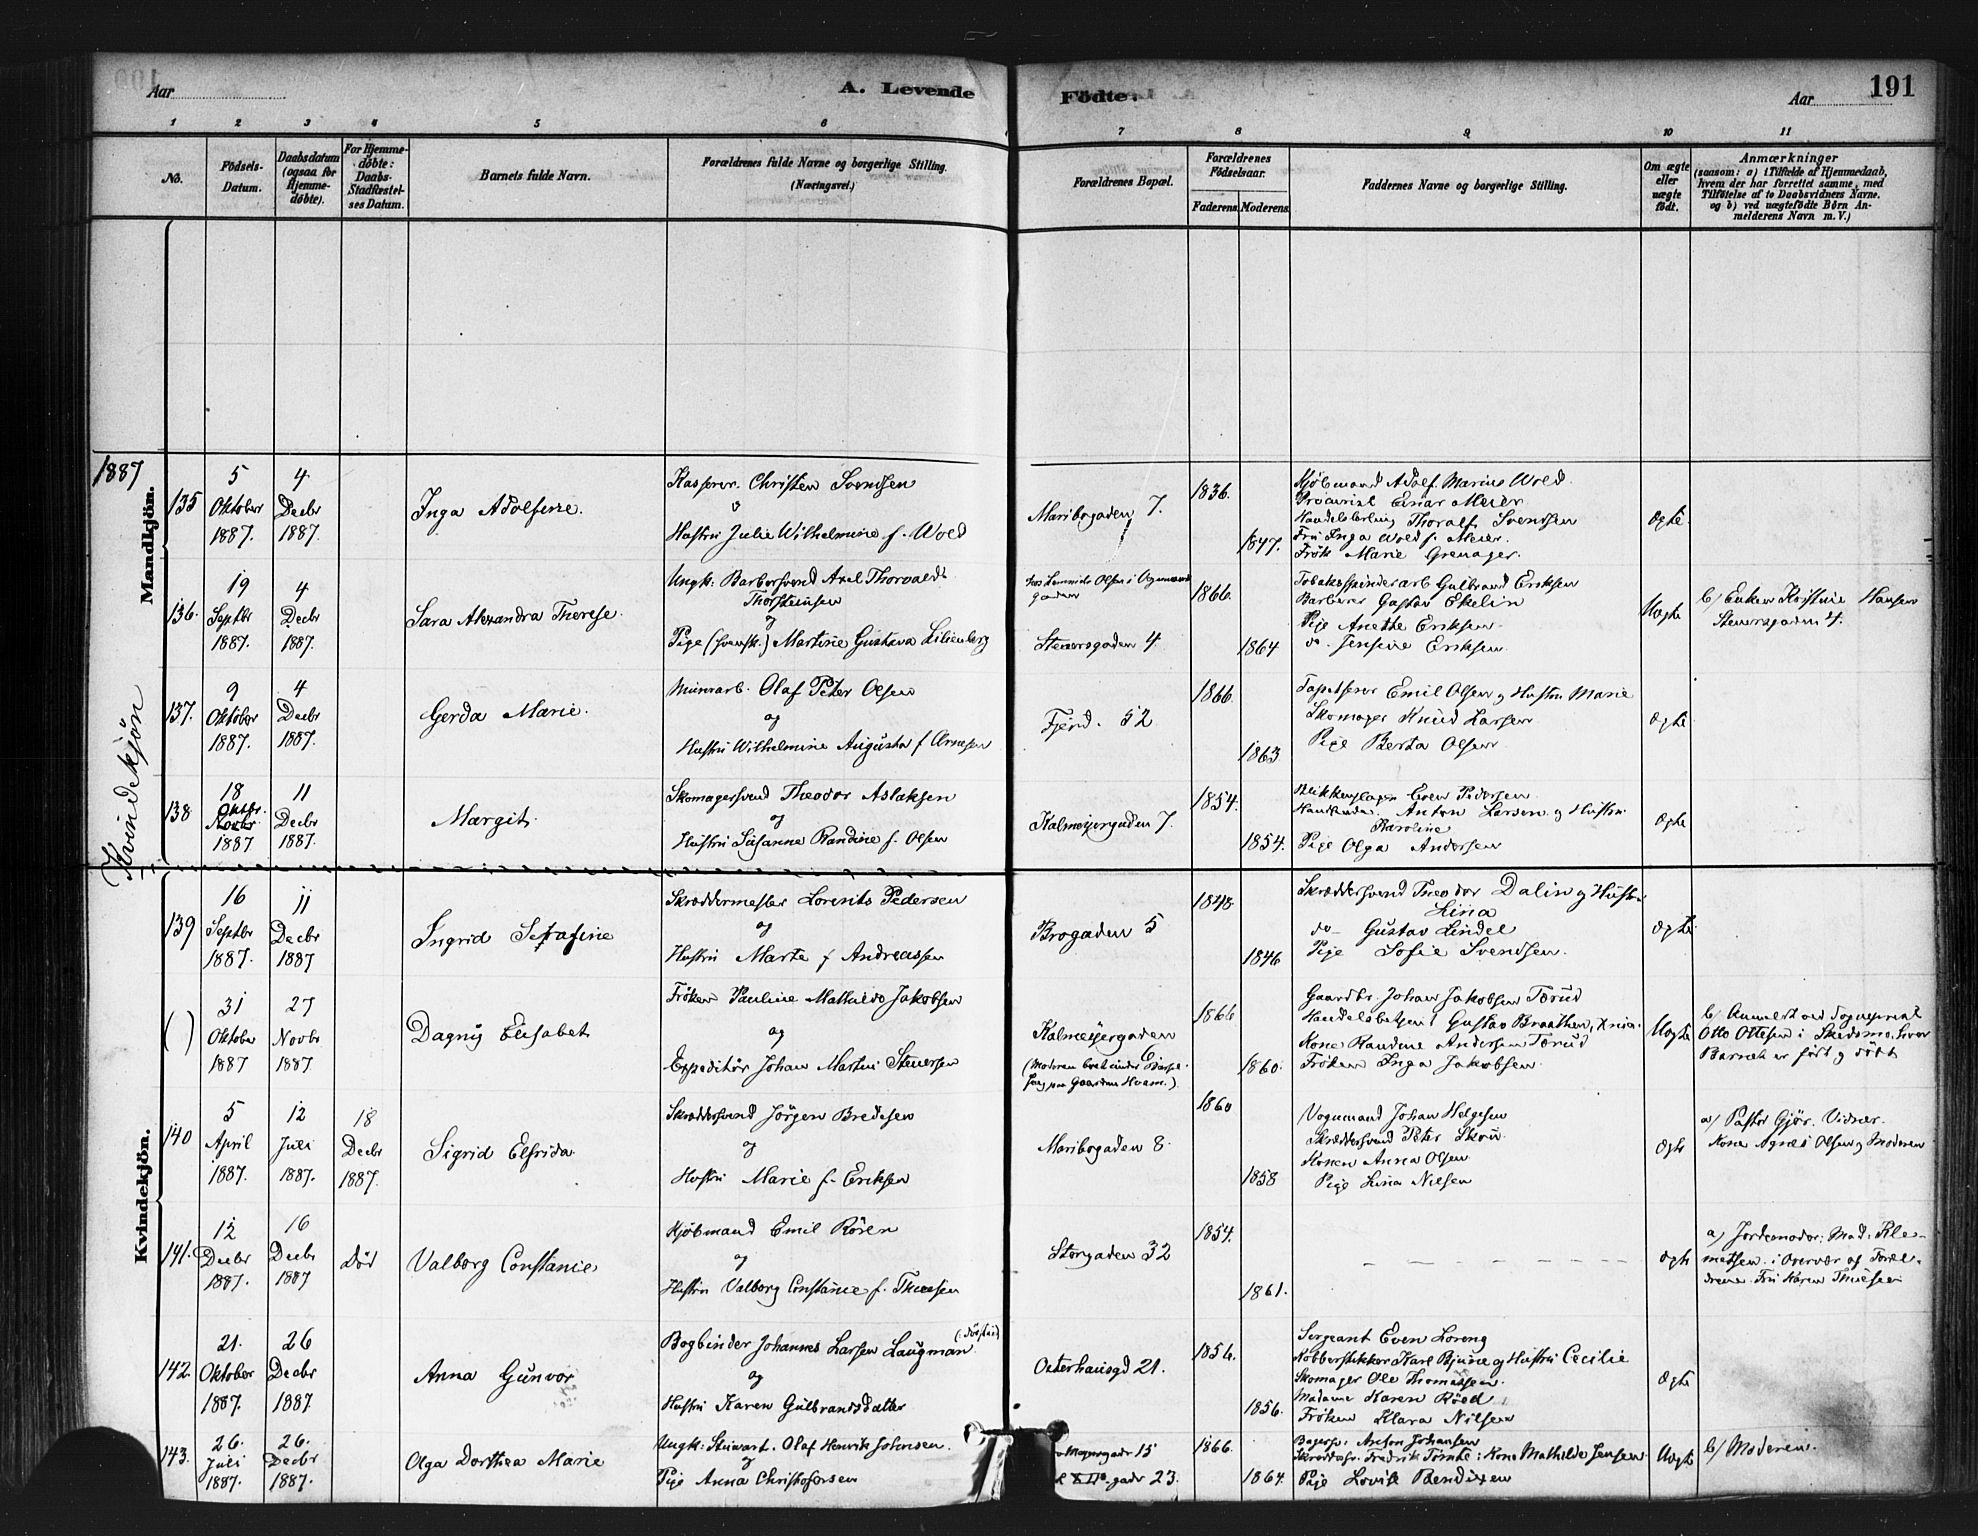 Aar
A. Levende
Fødte.
Aar
191
1 2 3 4 5 6 7 8 9 10 11
No.
Fødsels-Datum.
Daabsdatum (ogsaa for Hjemme-døbte).
For Hjemme-døbte: Daabs-Stadfæstel-ses Datum.
Barnets fulde Navn.
Forældrenes fulde Navne og borgerlige Stilling.
(Næringsvei.)
Forældrenes Bopæl.
Forældrenes Fødselsaar.
Faderens. Moderens.
Faddernes Navne og borgerlige Stilling.
Om ægte eller uægte født.
Anmærkninger
(saasom: a) i Tilfælde af Hjemmedaab,
hvem der har forrettet samme, med
Tilføielse af to Daabsvidners Navne.
og b) ved uægtefødte Børn An-
melderens Navn m. V.)
Mandkjön.
Kvindekjön
Kvindekjön.
1887
135
5 Oktober 1887.
4 Decbr 1887.
Inga Adolfine.
Kasserer Christen Svendsen
&
Hustru Julie Wilhelmine f. Wold
Maribogaden 7.
1836.
1847.
Kjøbmand Adolf Marius Wold.
Einar Meier
Thoralf Svendsen
Fru Inga Wold f. Meier.
Frøk Marie Grenager.
Ægte.
136.
19 Septbr 1887.
4 Decbr 1887.
Sara Alexandra Therese.
Ungk: Barbersvend Axel Thorvald
Thorsteinsen
og
Pige (svensk.) Martine Gustava Lilienberg
Stenersgaden 4.
1866.
1864
Tobaksspinderarb Gulbrand Eriksen
Barberer Gustav Ekelin
Pige Anethe Eriksen
do. Jensine Eriksen
Uægte
b/ Enken Kristine Hansen
Stenersgaden 4.
137.
9 Oktober 1887.
4 Decbr 1887.
Gerda Marie.
Murerarb. Olaf Peter Olsen
og
Hustru Wilhelmine Augusta f Arnesen
Fjerd. 52
1866.
1863
Tapetserer Emil Olsen og Hustru Marie
Skomager Knud Larsen
Pige Berta Olsen
Ægte
138
18 Oktbr. Novbr 1887
11 Decbr 1887.
Margit.
Skomagersvend Theodor Aslaksen
og
Hustru Susanne Randine f. Olsen
Kalmeyergaden 7.
1854.
1854.
Blikkenslager Even Pedersen
Anton Larsen og Hustru
Karoline
Pige Olga Andersen
Ægte
139
16 Septbr 1887.
11 Decbr 1887
Ingrid Serafine
Skræddermester Lorents Pedersen
og
Hustru Marte f Andreassen
Brogaden 5
1848
1846
Skræddersvend Theodor Dalin og Hustru
Lina
do Gustav Lindel
Pige Sofie Svendsen.
Ægte
( )
31 Oktober 1887
27 Novbr 1887
Dagny Elisabet
Frøken Pauline Mathilde Jakobsen
og
Expeditør Johan Martin Stenersen
Kalmeyergaden
(Moderen boet under Barsel
paa Gaarden Hvam.)
1866
1860.
Gaardbr. Johan Jakobsen Tærud
Handelsbetjent Gustav Braathen, Xnia.
Kone Randine Andersen Tærud
Frøken Inga Jakobsen
Uægte
b/ Anmeldt ved Sogneprest
Otto Ottesen i Skedsmo, hvor
Barnet er født og døbt
140
5 April 1887.
12 Juli 1887.
18 Decbr 1887.
Sigrid Elfrida
Skræddersvend Jørgen Bredesen
og
Hustru Marie f. Eriksen
Maribogaden 8.
1860
1858
Vognmand Johan Helgesen
Skræddersvend Peter Skou
Konen Anna Olsen
Pige Lina Nilsen
Ægte
a/ Pastor Gjør. Vidner.
Kone Agnes Olsen og Moderen
141.
12 Decbr 1887.
16 Decbr 1887
Død
Valborg Constance
Kjøbmand Emil Røren
og
Hustru Valborg Constance f. Thuesen
Storgaden 32
1854.
1861.
Ægte
a/ Jordemoder: Mad: Kle-
metsen i Overvær af Foræl-
drene. Fru Karen Thuesen
142.
21. Oktober 1887.
26 Decbr 1887.
Anna Gunvor
Bogbinder Johannes Larsen Laugman
og
Hustru Karen Gulbrandsdatter
Osterhausgd 21.
1856.
1856.
Sergeant Even Loreng
Kobberstikker Karl Bjune og Hustru Cecilie
Skomager Ole Thomassen
Madame Karen Røed
Frøken Klara Nilsen
Ægte
143.
26. Juli 1887.
26. Decbr 1887.
Olga Dorthea Marie
Ungk: Steiwart. Olaf Henrik Johnsen.
og
Pige Anna Christofersen
gadr 15
gadr 23.
1866.
1864.
Bagersv: Anton Johansen
Skræddsv. Fredrik Tømte: Kone Mathilde Jensen.
Pige Lovise Bendixen
Uægte
b/ Moderen.